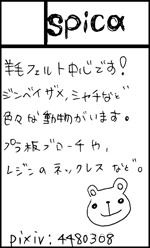 spica
羊毛フェルト中心です!
ジンベイザメ,シャチなど
色々な動物がいます。
プラ板ブローチや,
レジンのネックレスなど。
pixiv:4480308